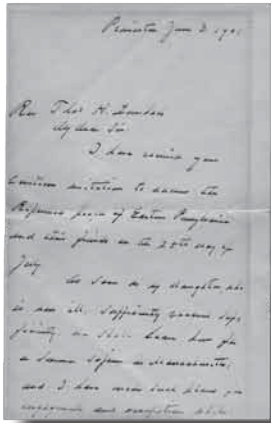 Princeton June 3 1901
Rev Thos H.
My dear Sir
I have received your
invitation to address the
Reformed people of Eastern Pennsylvania
and their friends on the 20th day of
July
As soon as my daughter, who
is now ill, sufficiently recovers
we shall leave here for
a summer sojourn in Massachusetts;
and I have made such plans for
engagements and occupations while